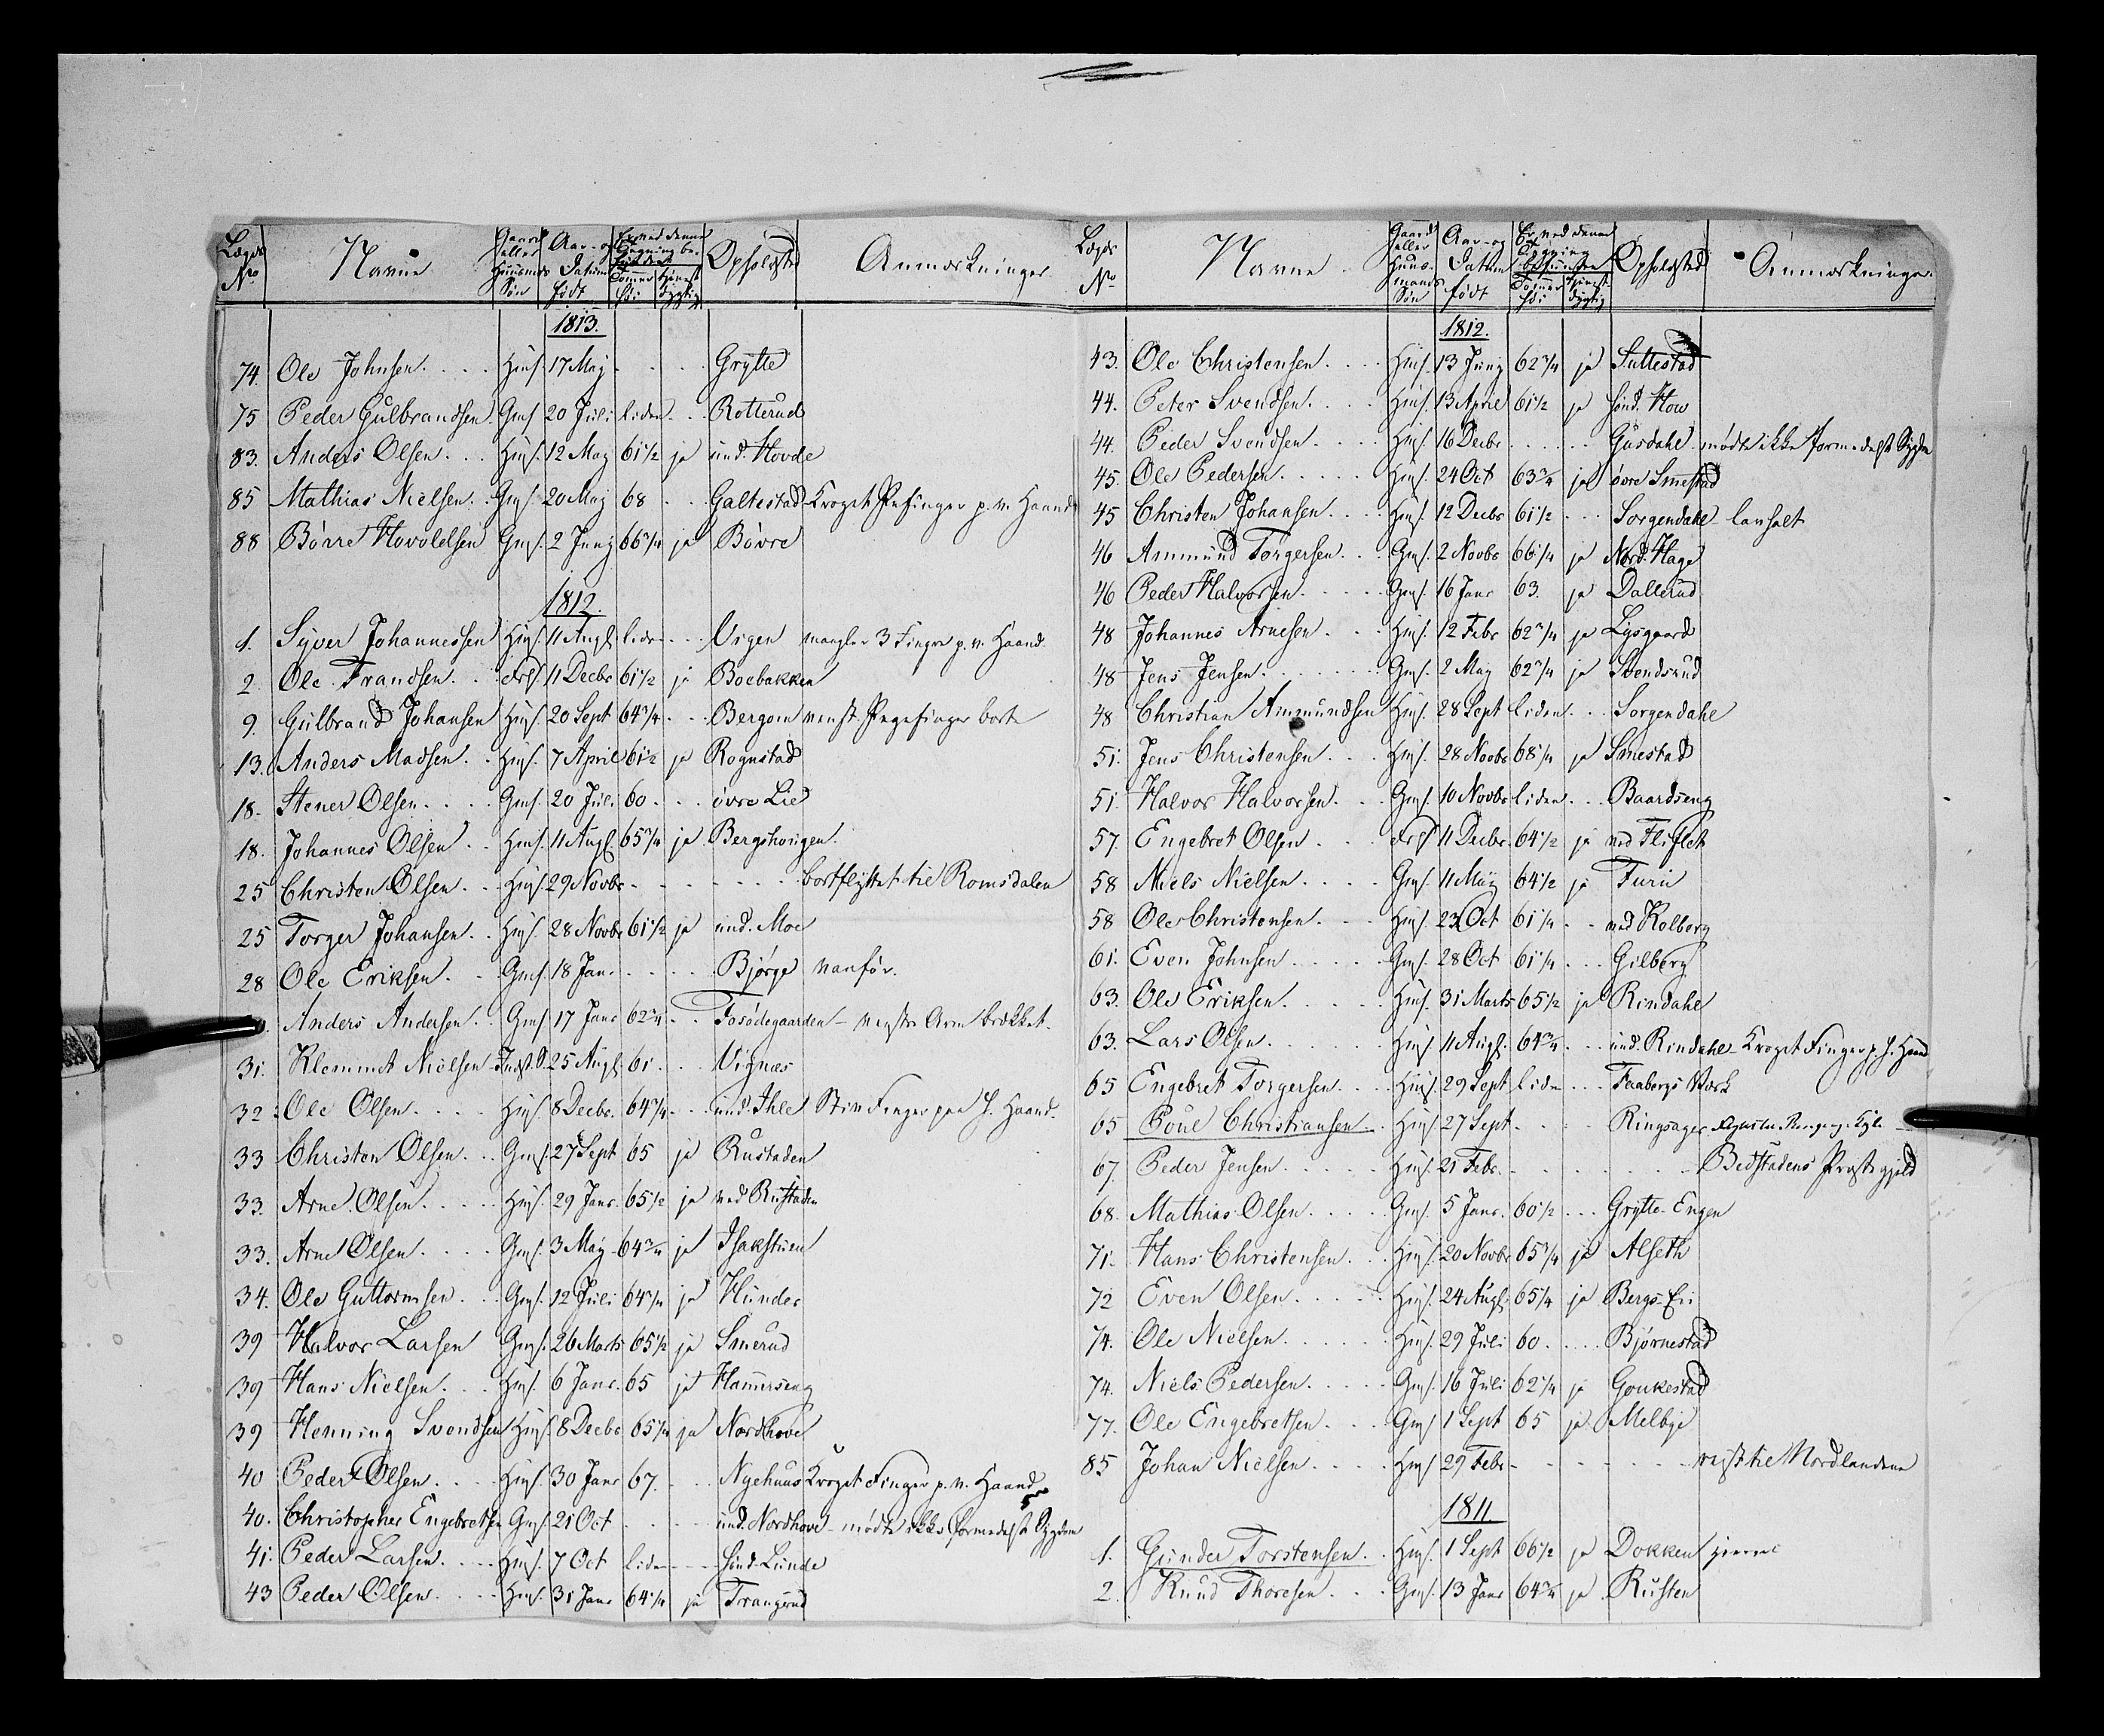 Lægds No Navne Gaard eller Huusmands Søn Aar- og Datum født Er ved denne Tommer høi tjenst dygtig Opholdsted Anmærkninger
1813.
74. Ole Johnsen Hmſ. 17 May Grytte
75 Peder Gulbrandsen Gmſ 20 Juli liden Rotterud
83. Anders Olsen Hmſ. 12 May 61 1/2 ja und. Hovde
85 Mathias Nielsen Gmſ. 20 May 68 Galtestad Kroget Pefinger p. v. Haand
88 Börre Hovolelsen Gmſ. 2 Juny 66 3/4 ja Bövre
1812.
1. Syver Johannessen Hmſ. 11 Augſ. liden Vigen mangler 3 Fingre p. v. Haand
2. Ole Frandsen 11 Decbr 61 1/2 ja Boebakken
9. Gulbrand Johansen Hmſ. 20 Sept 64 3/4 Bergom venst. Pegefinger borte
13. Anders Madsen Hmſ. 7 April 61 1/2 ja Rognstad
18. Stener Olsen Gmſ. 20 Juli 60 övre Lie
18. Johannes Olsen Hmſ. 11 Augſ. 65 3/4 ja Bergshougen
25 Christen Olsen Hmſ 29 Novbr bortflyttet til Romsdalen
25 Torger Johansen Hmſ. 28 Novbr 61 1/2 ja und. Moe
28 Ole Eriksen Gmſ. 18 Janr Bjørge vanför.
Anders Andersen Gmſ. 17 Janr 62 3/4 Fosödegaarden venstre Arm brækket
31. Klemmet Nielsen Indst. S. 25 Augſ. 61. Vignæs
32. Ole Olsen Hmſ. 8 Decbr. 64 3/4 und. Ihle Stiv Finger paa h. Haand.
33 Christen Olsen Gmſ. 27 Sept 65 ja Rustaden
33. Arne Olsen Hmſ. 29 Janr. 65 1/2 ja ved Rustaden
33. Arne Olsen Gmſ. 3 May 64 3/4 ja Isakstuen
34. Ole Guttormsen Gmſ. 12 Juli 64 3/4 ja Hunder
39 Halvor Larsen Gmſ. 26 Marts 65 1/2 ja Smerud
39 Hans Nielsen Hmſ. 6 Janr. 65 ja Hamerseng
39 Henning Svendsen Hmſ. 8 Decbr 65 1/4 ja Nordhove
40 Peder Olsen Hmſ. 30 Janr 67. Nyehuus Kroget Finger p. v. Haand
40. Christopher Engebretsen Gmſ. 21 Oct und. Nordhove mödte ikke formedelst Sygdom
41. Peder Larsen Hmſ. 7 Oct liden Sönd. Lunde
43 Peder Olsen Hmſ. 31 Janr 64 1/4 ja Trangrud
Lægds No Navne Gaard eller Huusmands Søn Aar- og Datum født Er ved denne befunden Tommer høi tjenst dygtig Opholdsted Anmærkninger
1812.
43. Ole Christensen Hmſ. 13 Juny 62 3/4 ja Suttestad
44. Peter Svendsen Hmſ. 13 April 61 1/2 ja sönd. How
44. Peder Svendsen Hmſ. 16 Decbr Gusdahl mödte ikke formedelst Sygdom
45. Ole Pedersen Hmſ. 24 Oct 63 3/4 ja övre Smestad
45 Christen Johansen Hmſ. 12 Decbr 61 1/2 Sorgendahl lavhalt
46 Ammund Torgersen Gmſ. 2 Novbr 66 1/4 ja Nord. Hage
46 Peder Halvorsen Gmſ. 16 Janr 63. ja Dallerud
48 Johannes Arnesen Hmſ. 12 Febr 62 3/4 ja Lysgaard
48 Jens Jensen Gmſ. 2 May 62 3/4 ja Svendsrud
48 Christian Ammundsen Hmſ. 28 Sept liden Sorgendahl
51. Jens Christensen Hmſ. 28 Novbr 68 1/4 ja Smestad
51. Halvor Halvorsen Gmſ. 10 Novbr liden Baardseng
57. Engebret Olsen 11 Decbr. 64 1/2 ja ved Fliflet
58 Niels Nielsen Gmſ. 11 May 64 1/2 ja Furu
58 Ole Christensen Hmſ. 23 Oct 61 1/4 ved Kolberg
61. Even Johnsen Gmſ. 28 Oct 61 1/4 Gilberg
63. Ole Eriksen Hmſ. 31 Marts 65 1/2 ja Rindahl
63. Lars Olsen Hmſ 11 Augſ. 64 3/4 und. Rindahl Kroget Finger p. h. Haand
65 Engebret Torgersen Hmſ. 29 Sept liden Faabergs Værk
65 Poul Christiansen Hmſ. 27 Sept Ringsager
67. Peder Jensen Hmſ. 21 Febr. Bedstadens Præstegjeld
68. Mathias Olsen Gmſ. 5 Janr. 60 1/2 Grytte-Engen
71. Hans Christensen Hmſ. 20 Novbr 65 3/4 ja Alseth
72 Even Olsen Hmſ. 24 Augſ. 65 1/4 ja Bergs-Eie
74. Ole Nielsen Hmſ. 29 Juli 60. Bjørnestad
74. Niels Pedersen Gmſ. 16 Juli 62 1/4 ja Goukestad
77. Ole Engebretsen Gmſ 1 Sept 65 ja Melbye
85 Johan Nielsen Hmſ 29 Febr reist til Nordlandene
1811
1. Gunder Torstensen Hmſ. 1 Sept 66 1/2 ja Dokken
2. Knud Thoresen Gmſ. 13 Janr 64 3/4 ja Rusten